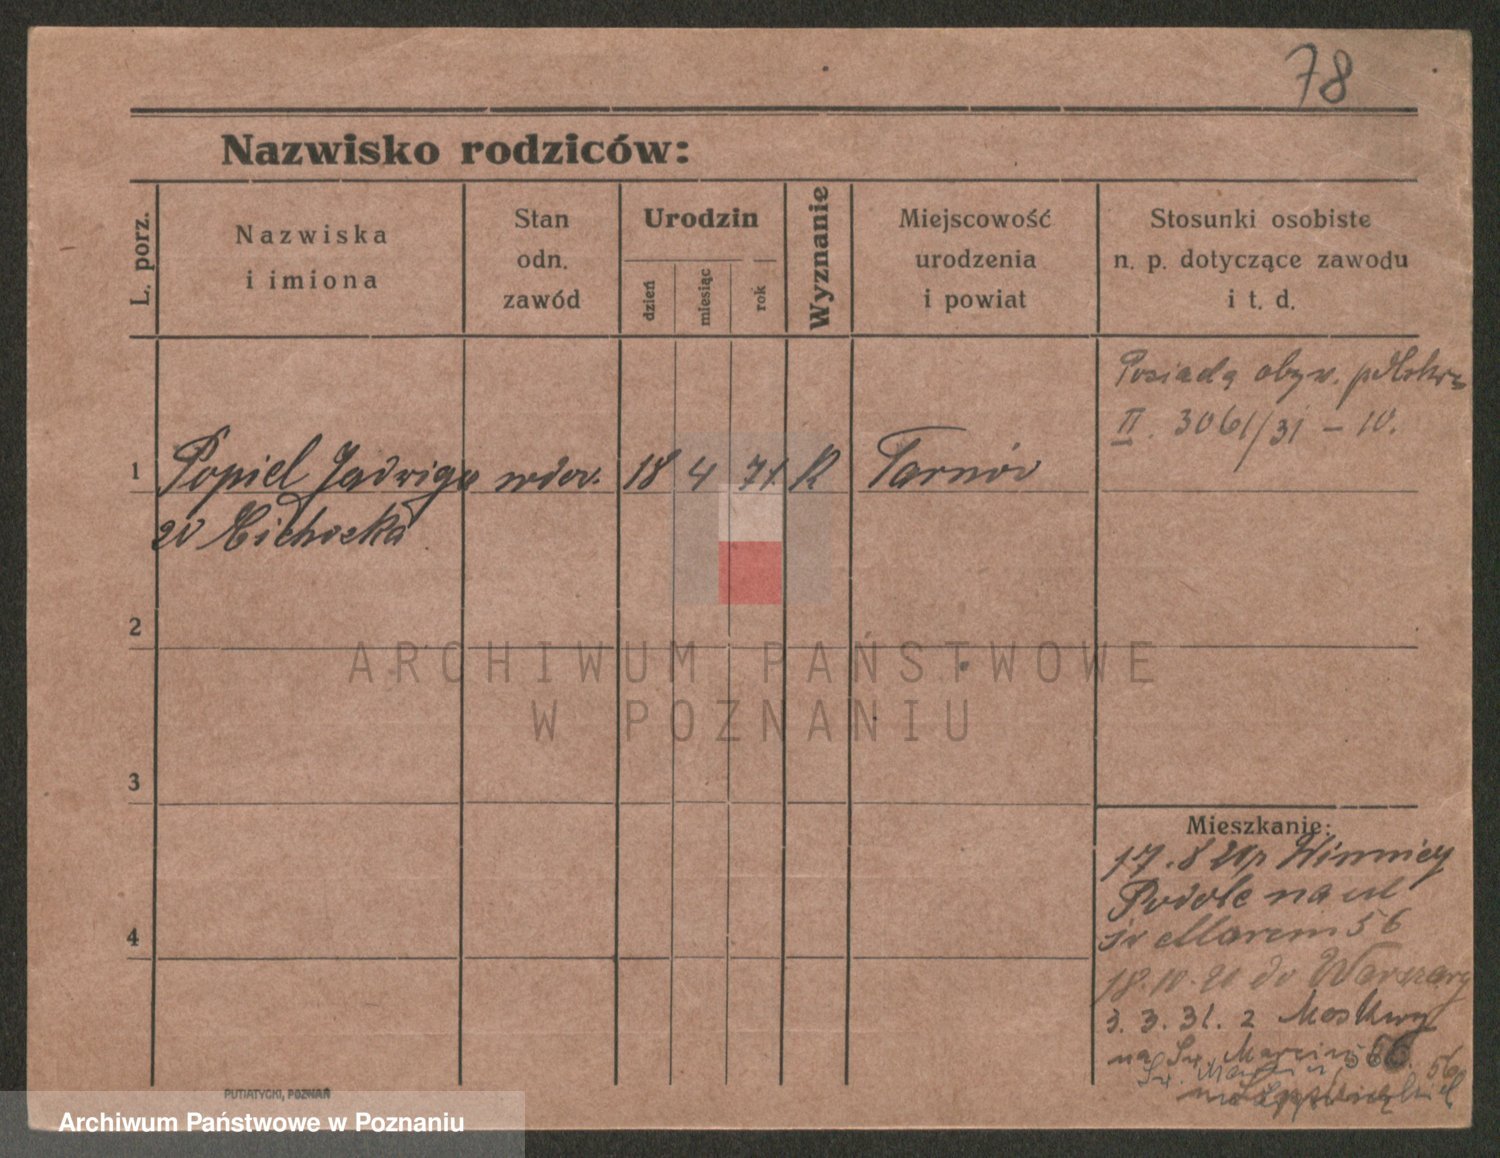 78
Nazwisko rodziców:
L. porz.
Nazwiska
i imiona
Stan
odn.
zawód
Urodzin
dzień
miesiąc
rok
Wyznanie
Miejscowość
urodzenia
i powiat
Stosunki osobiste
n. p. dotyczące zawodu
i t. d.
Posiada obyw. polskie
II. 3061/31 - IV.
1 Popiel Jadwiga wdow. 18 4 71. R Tarnów
zd Cichocka
2
3
4
Mieszkanie:
17. 8 20 Winnicy
Podole na ul
św Marcin 56
18. 10. 20 do Warszawy
3. 3. 31. z Moskwy
na Św. Marcin 56.
Św. Marcin 56
ARCHIWUM PAŃSTWOWE
W POZNANIU
PUTIATYCKI, POZNAŃ
Archiwum Państwowe w Poznaniu